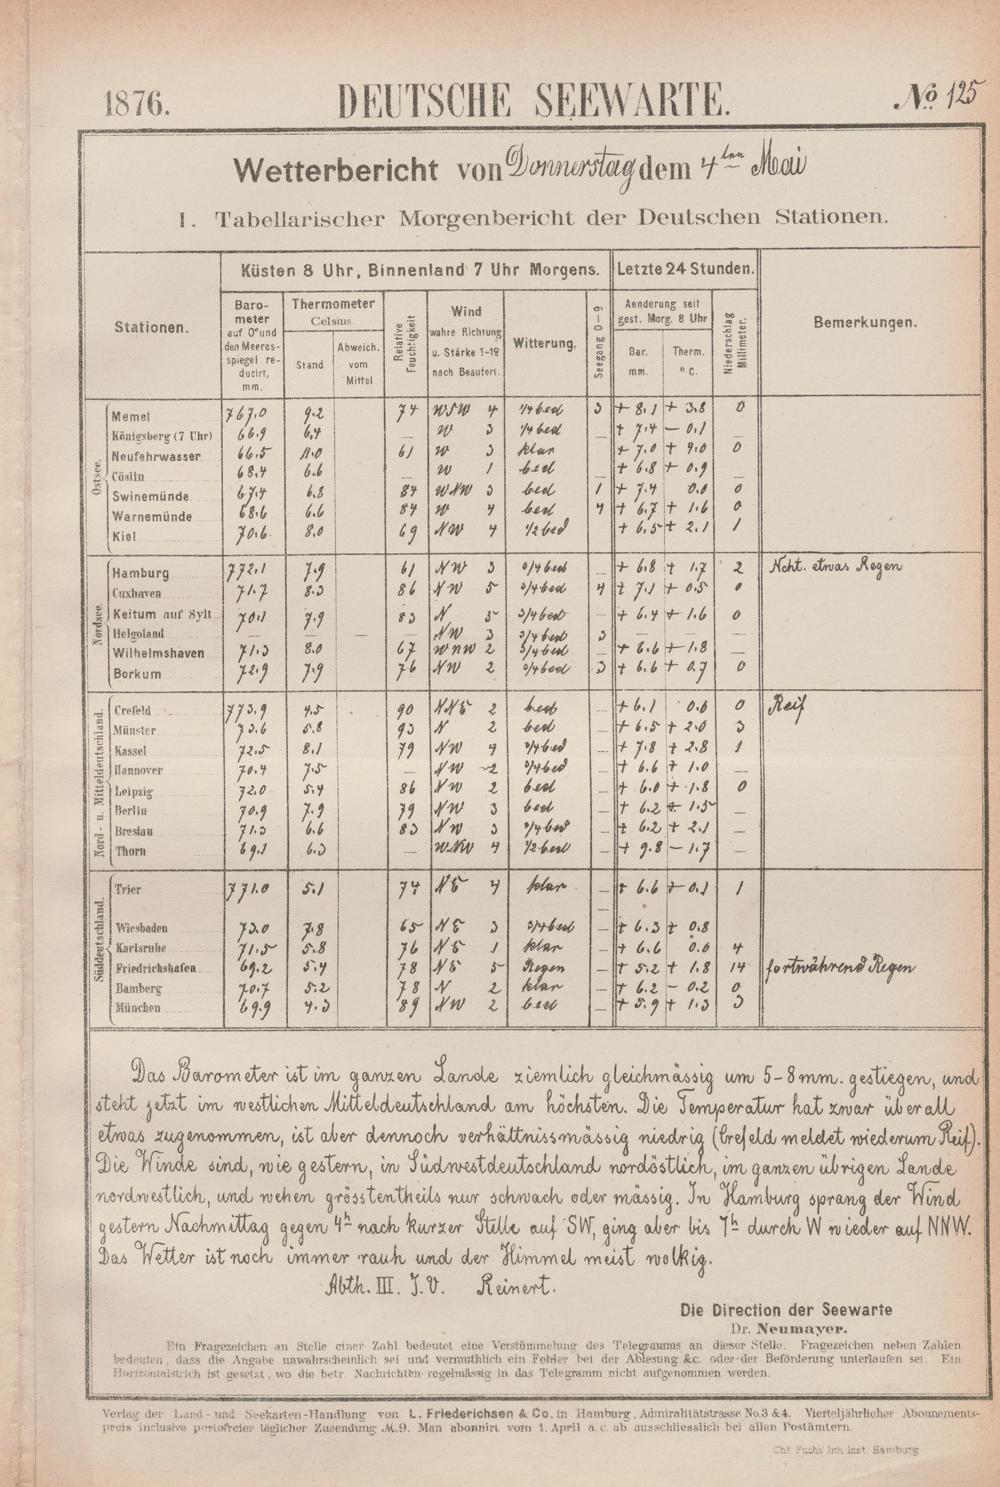 1876. DEUTSCHE SEEWARTE. No. 125
Wetterbericht von Donnerstag dem 4ten Mai
I. Tabellarischer Morgenbericht der Deutschen Stationen.
Stationen. Küsten 8 Uhr, Binnenland 7 Uhr Morgens. Letzte 24 Stunden. Bemerkungen.
Barometer auf 0° und den Meeresspiegel reducirt, mm. Thermometer Celsius Stand Abweich. vom Mittel Relative Feuchtigkeit Wind wahre Richtung u. Stärke 1-12 nach Beaufort. Witterung. Seegang 0-9 Aenderung seit gest. Morg. 8 Uhr Bar. mm. Therm. °C. Niederschlag Millimeter.
Ostsee.
Memel 767.0 9.2 74 WSW 4 1/4 bed 3 + 8.1 + 3.8 0
Königsberg (7 Uhr) 66.9 6.4 — W 3 1/4 bed — + 7.4 — 0.1 —
Neufahrwasser 66.5 11.0 61 W 3 klar + 7.0 + 9.0 0
Cöslin 68.4 6.6 — W 1 bed — + 6.8 + 0.9 —
Swinemünde 67.4 6.8 84 WNW 3 bed 1 + 7.4 0.0 0
Warnemünde 68.6 6.6 84 W 4 bed 4 + 6.7 + 1.6 0
Kiel 70.6 8.0 69 NW 4 1/2 bed + 6.5 + 2.1 1
Nordsee.
Hamburg 772.1 7.9 61 NW 3 3/4 bed — + 6.8 + 1.7 2 Ncht. etwas Regen
Cuxhaven 71.7 8.3 86 NW 5 3/4 bed 4 + 7.1 + 0.5 0
Keitum auf Sylt 70.1 7.9 83 N 5 3/4 bed — + 6.4 + 1.6 0
Helgoland — — — — NW 3 3/4 bed 3 — — —
Wilhelmshaven 71.3 8.0 67 WNW 2 3/4 bed + 6.6 + 1.8 —
Borkum 72.9 7.9 76 NW 2 3/4 bed 3 + 6.6 + 0.7 0
Nord- u. Mitteldeutschland.
Crefeld 773.9 4.5 90 NNE 2 bed — + 6.1 0.6 0 Reif
Münster 73.6 5.8 93 N 2 bed — + 6.5 + 2.0 3
Kassel 72.5 8.1 79 NW 4 3/4 bed — + 7.8 + 2.8 1
Hannover 70.4 7.5 — NW 2 3/4 bed — + 6.6 + 1.0 —
Leipzig 72.0 5.4 86 NW 2 bed — + 6.0 + 1.8 0
Berlin 70.9 7.9 79 NW 3 bed — + 6.2 + 1.5 —
Breslau 71.3 6.6 83 NW 3 3/4 bed — + 6.2 + 2.1 —
Thorn 69.1 6.3 — WNW 4 1/2 bed — + 9.8 — 1.7 —
Süddeutschland.
Trier 771.0 5.1 74 NE 4 klar — + 6.6 + 0.1 1
Wiesbaden 73.0 7.8 65 NE 3 3/4 bed — + 6.3 + 0.8
Karlsruhe 71.5 5.8 76 NE 1 klar — + 6.6 0.6 4
Friedrichshafen 69.2 5.4 78 NE 5 Regen — + 5.2 + 1.8 14 fortwährend Regen
Bamberg 70.7 5.2 78 N 2 klar — + 6.2 — 0.2 0
München 69.9 4.3 89 NW 2 bed — + 5.9 + 1.3 3
Das Barometer ist im ganzen Lande ziemlich gleichmässig um 5-8 mm. gestiegen, und
steht jetzt im westlichen Mitteldeutschland am höchsten. Die Temperatur hat zwar überall
etwas zugenommen, ist aber dennoch verhältnissmässig niedrig (Crefeld meldet wiederum Reif).
Die Winde sind, wie gestern, in Südwestdeutschland nordöstlich, im ganzen übrigen Lande
nordwestlich, und wehen grösstentheils nur schwach oder mässig. In Hamburg sprang der Wind
gestern Nachmittag gegen 4h nach kurzer Stille auf SW, ging aber bis 7h durch W wieder auf NNW.
Das Wetter ist noch immer rauh und der Himmel meist wolkig.
Abth. III. I.V. Reinert.
Die Direction der Seewarte
Dr. Neumayer.
Ein Fragezeichen an Stelle einer Zahl bedeutet eine Verstümmelung des Telegramms an dieser Stelle. Fragezeichen neben Zahlen
bedeuten, dass die Angabe unwahrscheinlich sei und vermuthlich ein Fehler bei der Ablesung &c. oder der Beförderung unterlaufen sei. Ein
Horizontalstrich ist gesetzt, wo die betr. Nachrichten regelmässig in das Telegramm nicht aufgenommen werden.
Verlag der Land- und Seekarten-Handlung von L. Friederichsen & Co. in Hamburg, Admiralitätstrasse No. 3 & 4. Vierteljährlicher Abonnements-
preis inclusive portofreier täglicher Zusendung M. 9. Man abonnirt vom 1. April a. c. ab ausschliesslich bei allen Postämtern.
Chs Fuchs lith. Inst. Hamburg